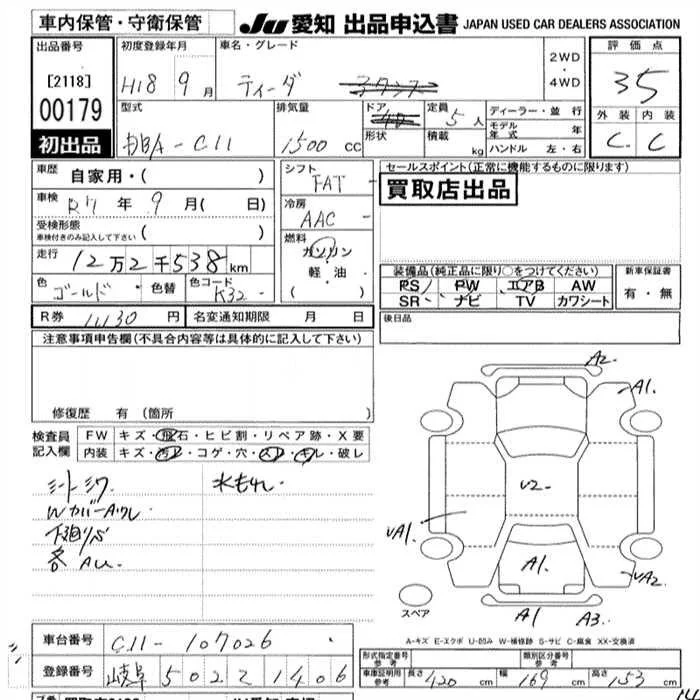 車内保管・守衛保管
JU 愛知 出品申込書 JAPAN USED CAR DEALERS ASSOCIATION
出品番号 [2118] 00179 初出品
初度登録年月 H18 9月
車名・グレード ティーダ
2WD・4WD
評価点 35
外装 内装
C C
型式 DBA-C11
排気量 1500 cc
ドア 4D 形状
定員 5人 積載 kg
ディーラー・並行
モデル年式 年
ハンドル 左・右
車歴 自家用・( )
車検 R7年 9月( 日)
受検形態 車検付きのみ記入して下さい ( )
走行 12万2千538km
色 ゴールド 色替 色コード K32
シフト FAT
冷房 AAC
燃料 ガソリン 軽油 ( )
セールスポイント(正常に機能するものに限ります)
買取店出品
装備品(純正品に限り○をつけてください)
PS PW エアB AW
SR ナビ TV カワシート
新車保証書 有・無
R券 円 名変通知期限 月 日
後日品
注意事項申告欄(不具合内容等は具体的に記入して下さい)
修復歴 有 (箇所
検査員記入欄 FW キズ・飛石・ヒビ割・リペア跡・X要
内装 キズ・汚れ・コゲ・穴・スレ・キレ・破レ
シートシワ 水もれ
下廻りS
各AU
A2
A1
U2
A1
UA2
A1 A3
スペア
A-キズ E-エクボ U-凹み W-補修跡 S-サビ C-腐食 XX-交換済
車台番号 C11-107026
登録番号 岐阜 502 1406
形式指定番号 参考 類別区分番号 参考
車庫証明用 参考 長さ 420 cm 幅 169 cm 高さ 153 cm